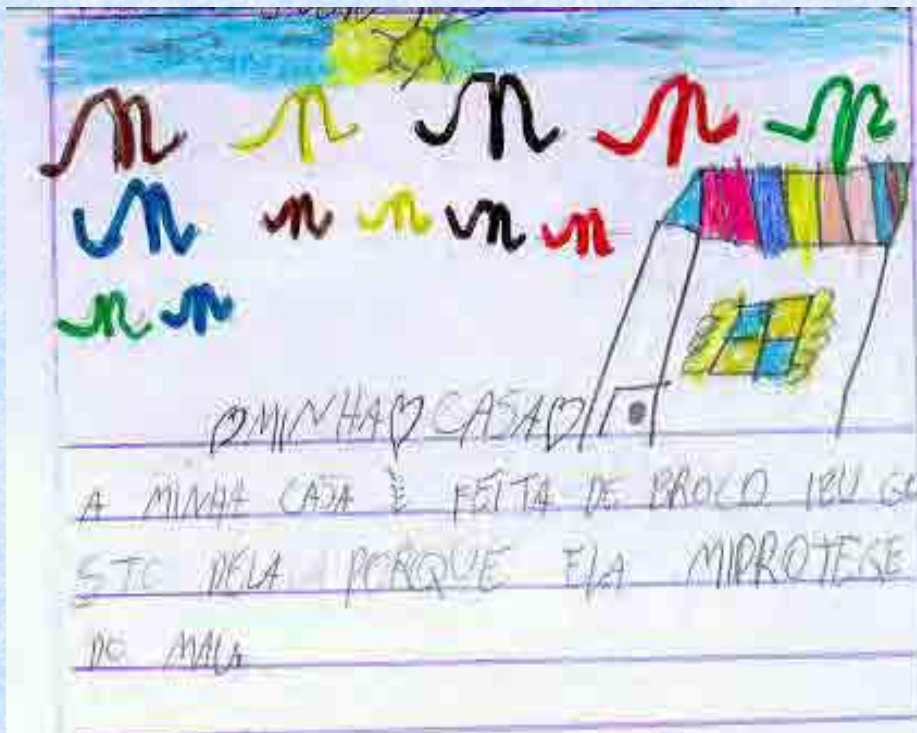 ♡MINHA♡CASA♡
A MINHA CASA É FEITA DE BROCO IEU GO
STO DELA PORQUE ELA MIPROTEGE
DO MAU